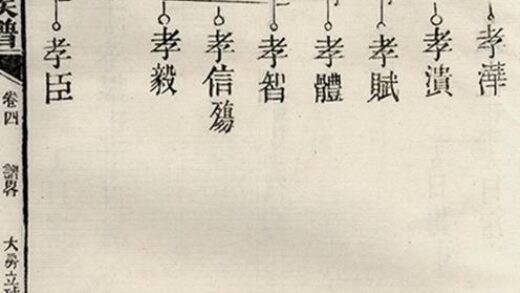 孝澕
孝濆
孝賦
孝體
孝智
孝信殤
孝毅
孝臣
族譜
卷四
譜畧
大房立